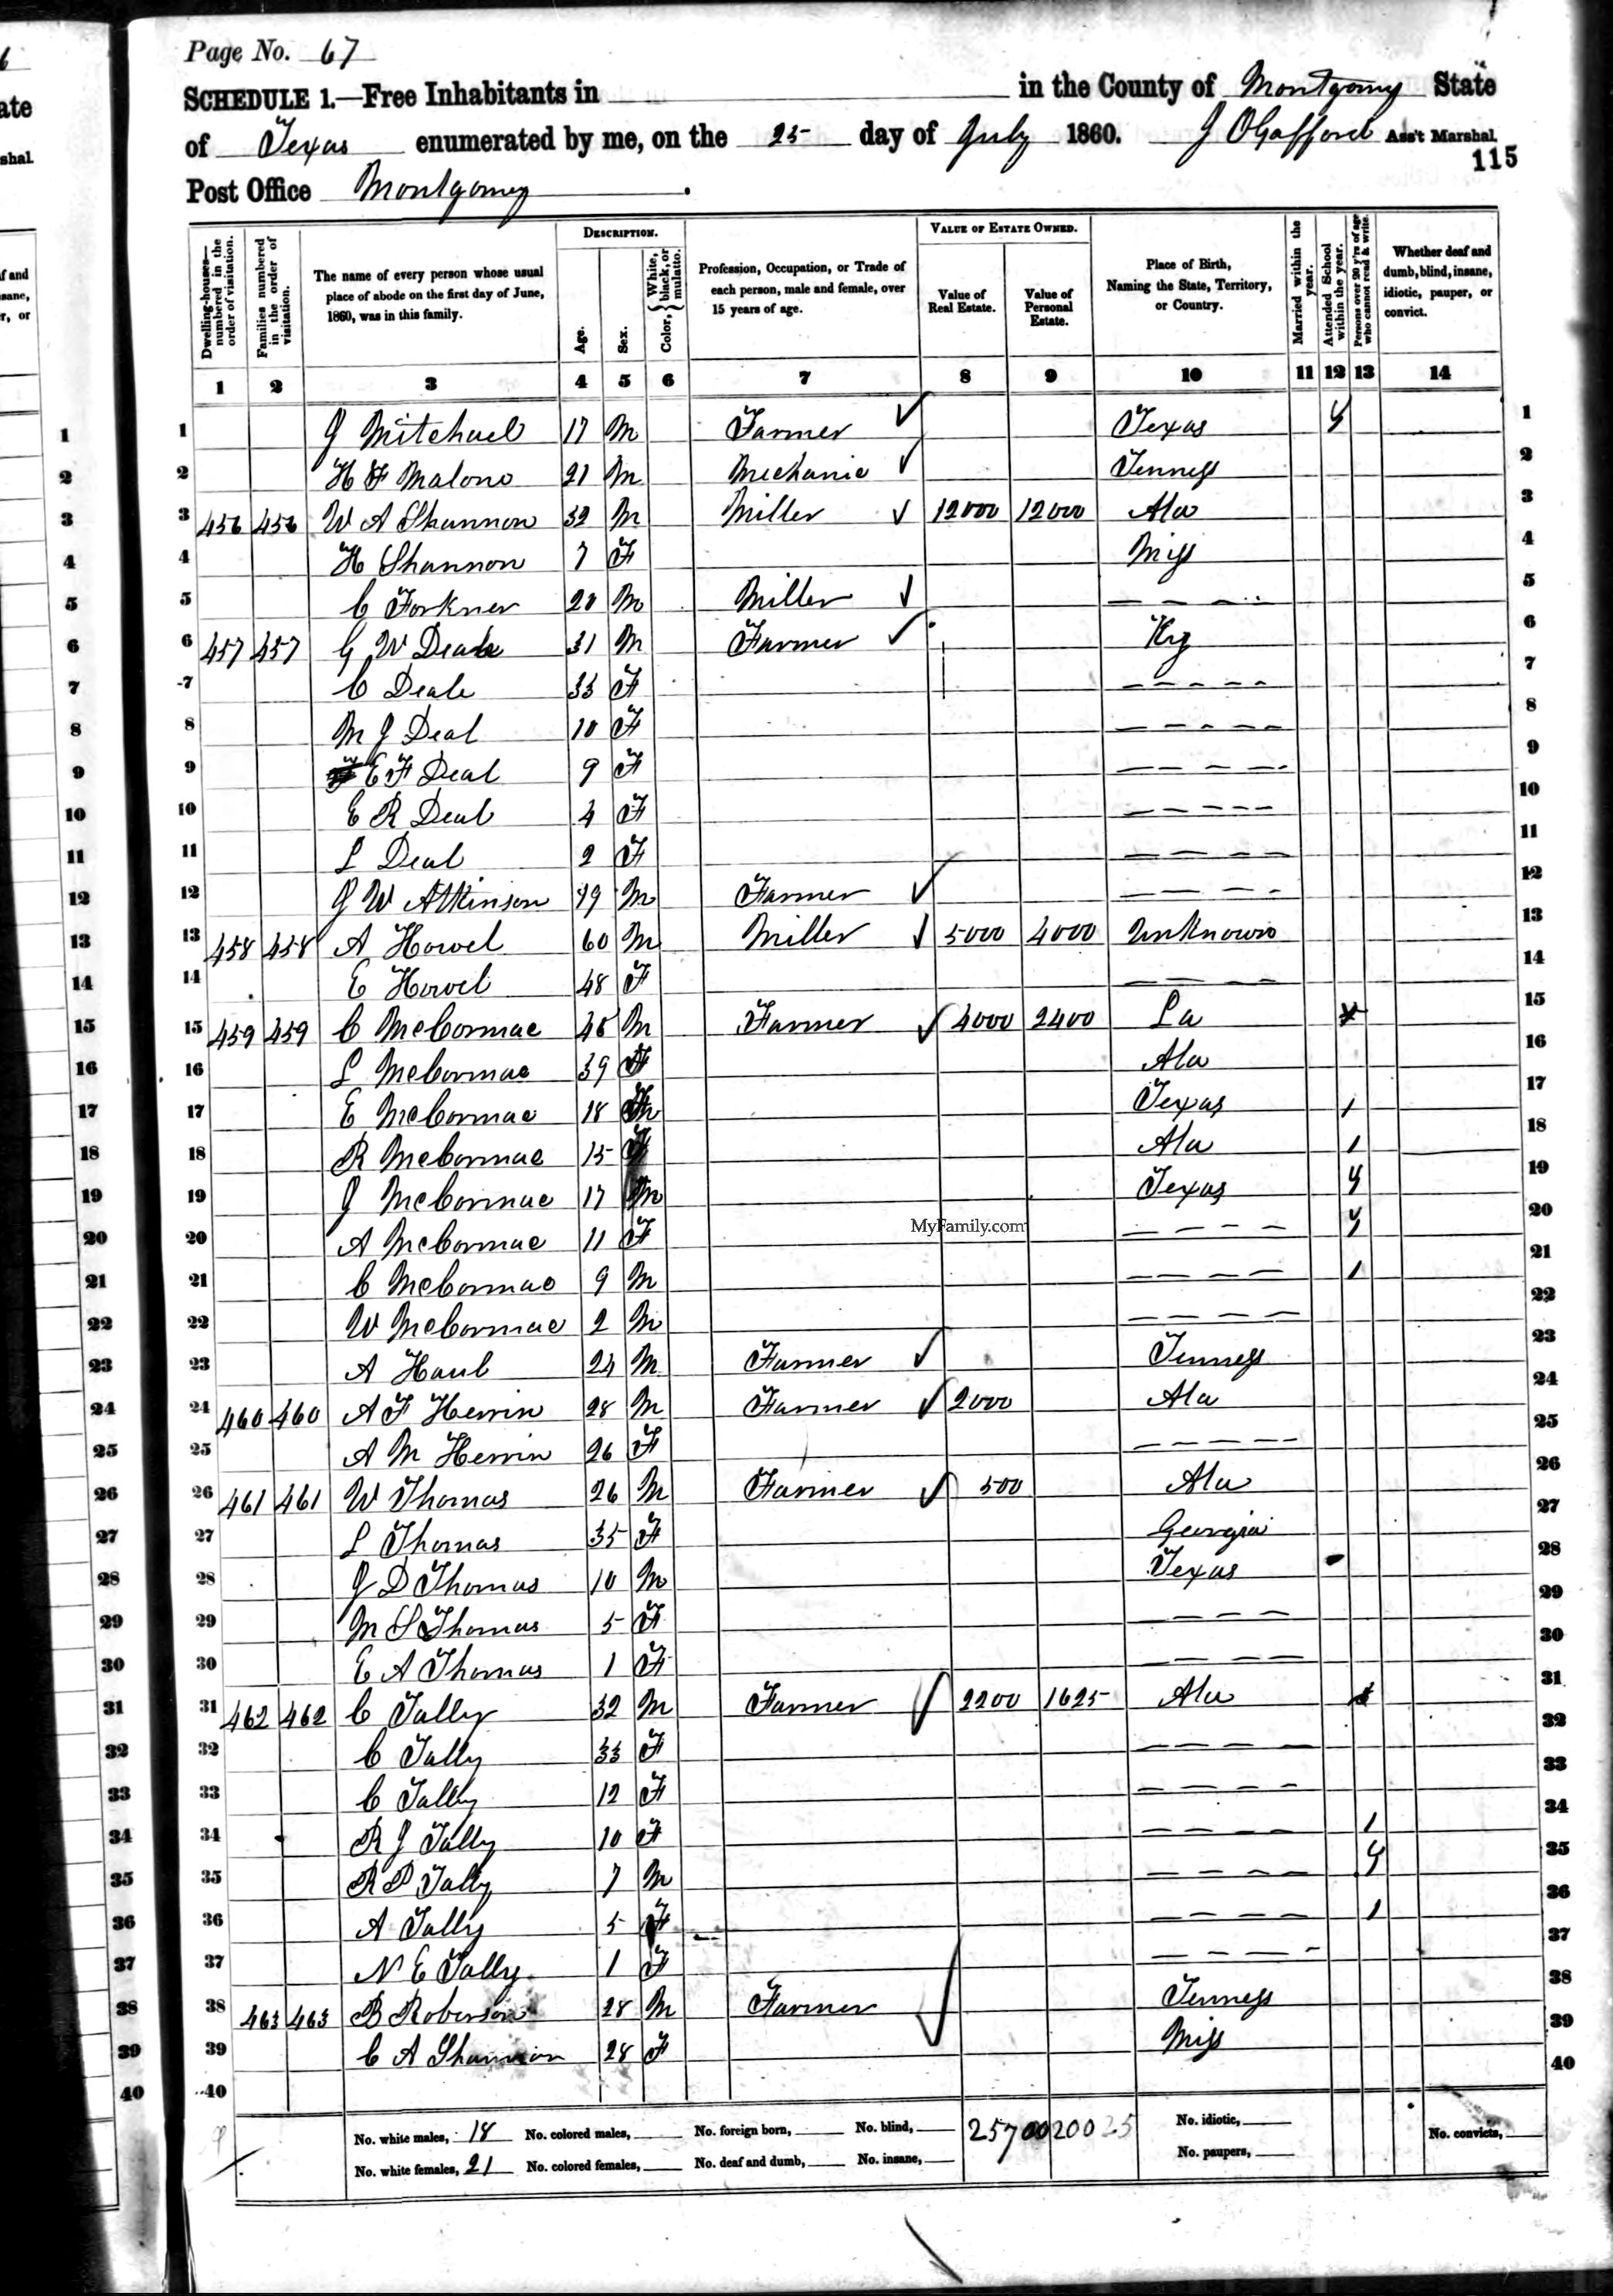 Page No. 67
SCHEDULE 1.—Free Inhabitants in in the County of Montgomy State
of Texas enumerated by me, on the 25 day of July 1860. J O Gafford Ass't Marshal.
115
Post Office Montgomy .
Dwelling-houses—numbered in the order of visitation.
Families numbered in the order of visitation.
The name of every person whose usual place of abode on the first day of June, 1860, was in this family.
DESCRIPTION.
Age.
Sex.
Color, { White, black, or mulatto.
Profession, Occupation, or Trade of each person, male and female, over 15 years of age.
VALUE OF ESTATE OWNED.
Value of Real Estate.
Value of Personal Estate.
Place of Birth, Naming the State, Territory, or Country.
Married within the year.
Attended School within the year.
Persons over 20 y'rs of age who cannot read & write.
Whether deaf and dumb, blind, insane, idiotic, pauper, or convict.
1 2 3 4 5 6 7 8 9 10 11 12 13 14
1 J Mitchael 17 M Farmer Texas 1
2 H F Malone 21 M Mechanic Tenness 2
3 456 456 W A Shannon 32 M Miller 12000 12000 Ala 3
4 H Shannon 7 F Miss 4
5 C Forkner 20 M Miller — — — 5
6 457 457 G W Deale 31 M Farmer Ky 6
7 C Deale 33 F — — — — — 7
8 M J Deal 10 F — — — — 8
9 E F Deal 9 F — — — — 9
10 E R Deal 4 F — — — — 10
11 L Deal 2 F — — — — 11
12 J W Atkinson 19 M Farmer — — — — 12
13 458 458 A Howel 60 M Miller 5000 4000 Unknown 13
14 E Howel 48 F — — — 14
15 459 459 C McCormac 46 M Farmer 4000 2400 La 15
16 L McCormac 39 F Ala 16
17 E McCormac 18 Texas / 17
18 R McCormac 15 F Ala / 18
19 J McCormac 17 M Texas 19
20 A McCormac 11 F — — — — 20
21 C McCormac 9 M — — — — / 21
22 W McCormac 2 M — — — — 22
23 A Haul 24 M Farmer Tenness 23
24 460 460 A F Herrin 28 M Farmer 2000 Ala 24
25 A M Herrin 26 F — — — — 25
26 461 461 W Thomas 26 M Farmer 500 Ala 26
27 L Thomas 35 F Georgia 27
28 J D Thomas 10 M Texas 28
29 M S Thomas 5 F — — — — 29
30 E A Thomas 1 F — — — — 30
31 462 462 C Tally 32 M Farmer 2200 1625 Ala 31
32 C Tally 33 F — — — — 32
33 C Tally 12 F — — — — 33
34 R J Tally 10 F — — — — / 34
35 R P Tally 7 M — — — — 35
36 A Tally 5 F — — — — / 36
37 N E Tally 1 F — — — — 37
38 463 463 B Roberson 28 M Farmer Tenness 38
39 C A Shannon 28 F Miss 39
40 40
No. white males, 18 No. colored males, No. foreign born, No. blind, 25700 20025 No. idiotic, No. convicts,
No. white females, 21 No. colored females, No. deaf and dumb, No. insane, No. paupers,
MyFamily.com